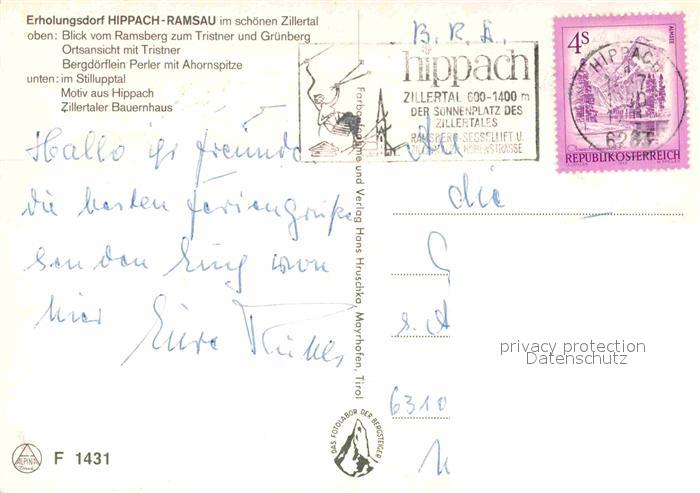 Erholungsdorf HIPPACH-RAMSAU im schönen Zillertal
oben: Blick vom Ramsberg zum Tristner und Grünberg
Ortsansicht mit Tristner
Bergdörflein Perler mit Ahornspitze
unten: im Stillupptal
Motiv aus Hippach
Zillertaler Bauernhaus
Hallo ihr Freunde
die besten Feriengrüße
von
hier Eure
F 1431
Farbaufnahme und Verlag Hans Hruschka, Mayrhofen, Tirol
DAS FOTOLABOR DER BERGSTEIGER
hippach
ZILLERTAL 600-1400 m
DER SONNENPLATZ DES
ZILLERTALES
RAMSBERG-SESSELLIFT U.
HÖHENSTRASSE
4S
ALMSEE
REPUBLIK ÖSTERREICH
HIPPACH
6283
An
die
6310
privacy protection
Datenschutz